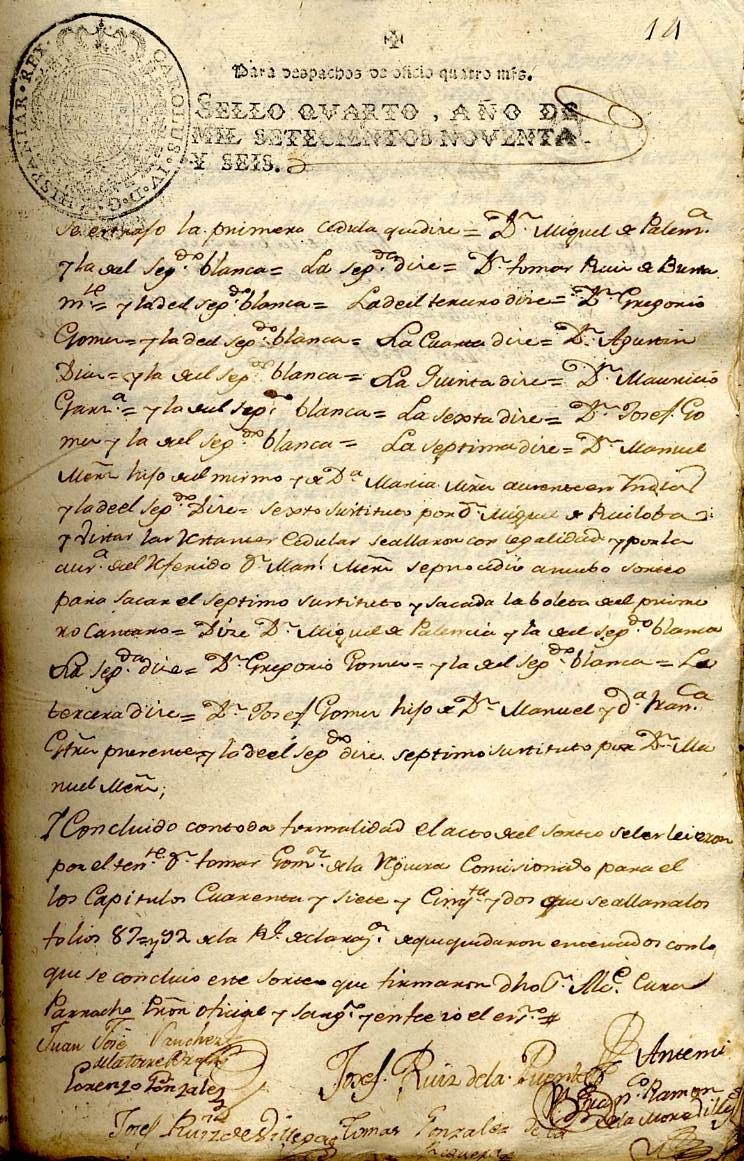 14
Para despachos de oficio quatro mrs.
SELLO QVARTO, AÑO DE
MIL SETECIENTOS NOVENTA
Y SEIS.
CAROLUS·IV·D·G·HISPANIAR·REX
se extrajo la primera cedula que dice = Dn. Miguel de Palena.
y la del segdo. blanca = La segda. dice = Dn. tomas Ruiz de Busta
mte. = y la del segdo. blanca = La del tercero dice = Dn. Gregorio
Gomez = y la del segdo. blanca = La Cuarta dice = Dn. Agustin
Diaz = y la del segdo. blanca = La Quinta dice = Dn. Mauricio
Garza. = y la del segdo. blanca = La sexta dice = Dn. Josef Go
mez y la del segdo. blanca = La septima dice = Dn. Manuel
hijo del mismo y de Da. Maria ausente en Indias
y la del segdo. Dice = sexto sustituto por Dn. Miguel de Ruiloba
y vistas las Cedulas se allaron con legalidad y por la
del Referido Dn. Manl. se procedio a nuebo sorteo
para sacar el septimo sustituto y sacada la boleta del prime
ro Cantaro = Dice Dn. Miguel de Palencia y la del segdo. blanca
La segda. dice = Dn. Gregorio Gomez = y la del segdo. blanca = La
tercera dice = Dn. Josef Gomez hijo de Dn. Manuel y Da. Franca.
presente y la del segdo. dice septimo sustituto por Dn. Ma
nuel
Y Concluido con toda formalidad el acto del sorteo se les leieron
por el tente. Dn. tomas Gonz. de la Riguera Comisionado para el
los Capitulos Cuarenta y siete y Cinqta. y dos que se allan a los
folios 87 y 92 de la Rl. de que quedaron enterados con lo
que se concluio este sorteo que firmaron dho Sr. Cura
Parracho oficiales y sargto. y en fee io el esno.
Juan José Sanchez
de la torre
Lorenzo Gonzalez
Josef Ruiz de la Puente
Antemi
Franco. Ramon
de la Mora
Josef Ruiz de Villegas
Tomas Gonzalez de la
Riguera